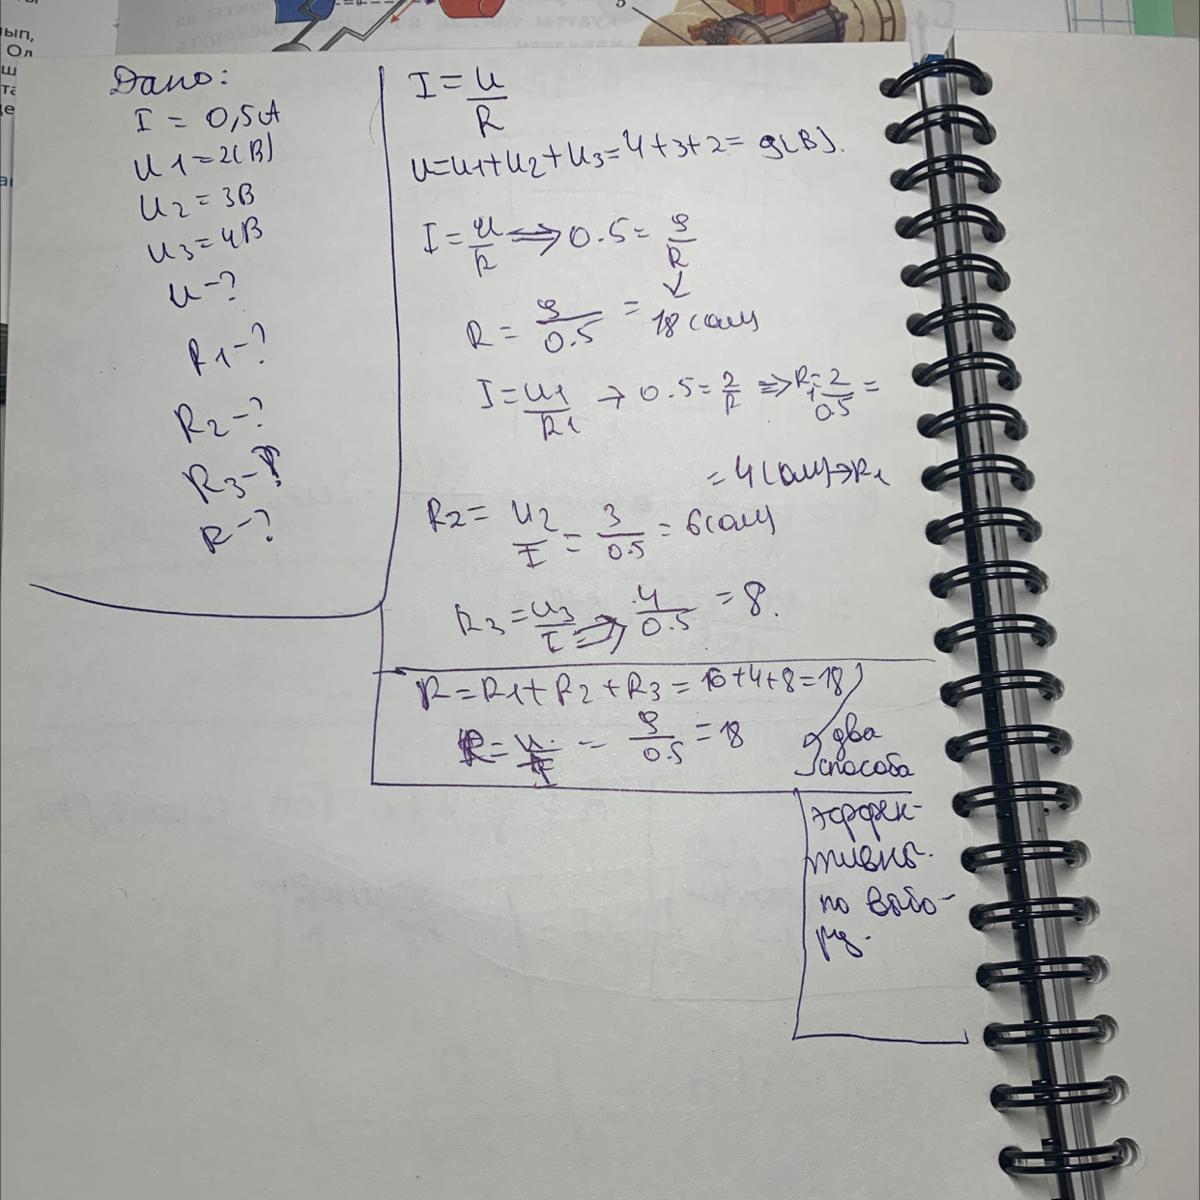 Дано:
I = 0,5А
U1=2(В)
U2=3В
U3=4В
U-?
R1-?
R2-?
R3-?
R-?
I=U/R
U=U1+U2+U3=4+3+2=9(В).
I=U/R => 0.5=9/R
R=9/0.5=18(ом)
I=U1/R1 → 0.5=2/R => R1=2/0.5=
=4(ом)→R1
R2=U2/I=3/0.5=6(ом)
R3=U3/I => 4/0.5=8.
R=R1+R2+R3=6+4+8=18
R=U/I=9/0.5=18
два
способа
эффек-
тивно.
по выбо-
ру.